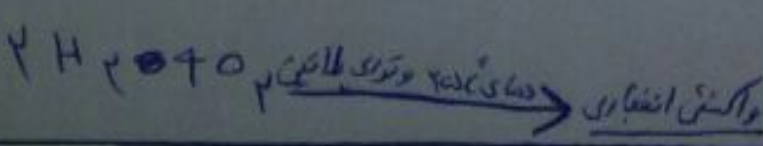 ۲H۲ + O۲ دمای ۲۵°C و توری پلاتینی → واکنش انفجاری